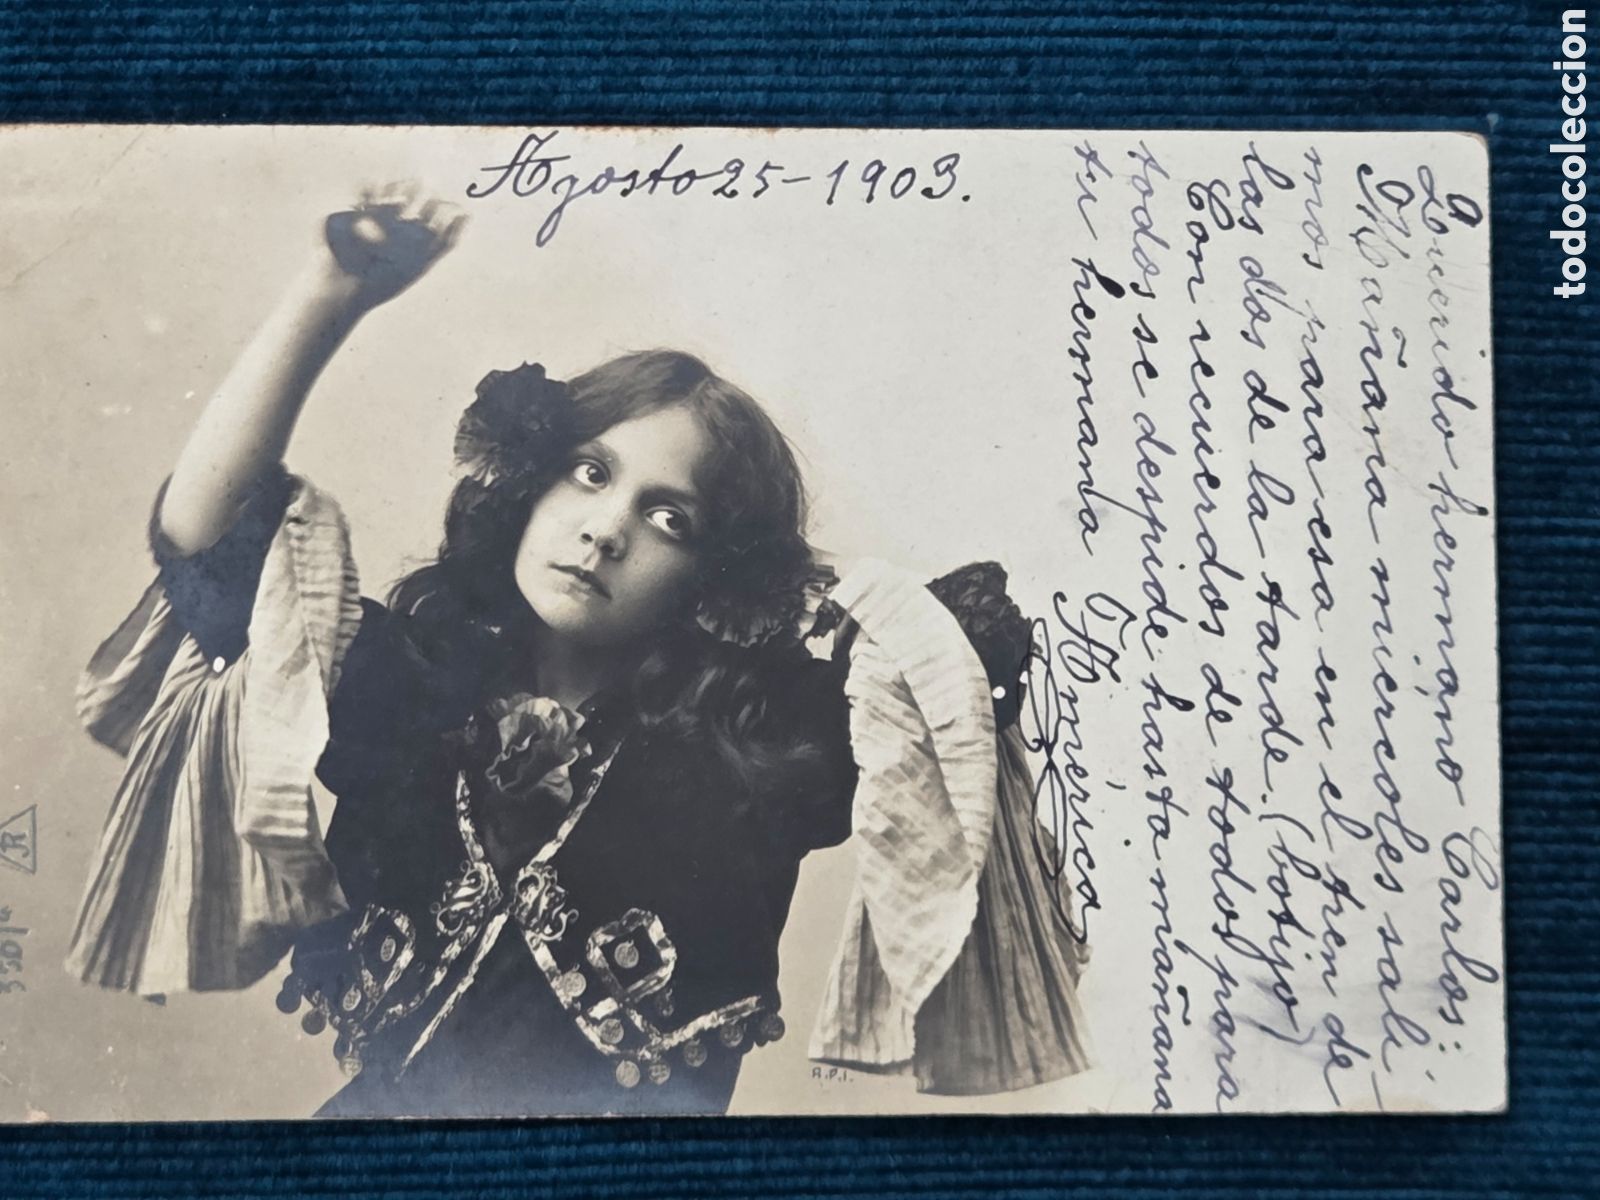 Agosto 25-1903.
Querido hermano Carlos:
Mañana miercoles sali-
mos para esa en el tren de
las dos de la tarde. (botijo)
Con recuerdos de todos para
todos se despide hasta mañana
tu hermana América
R.P.I.
todocoleccion